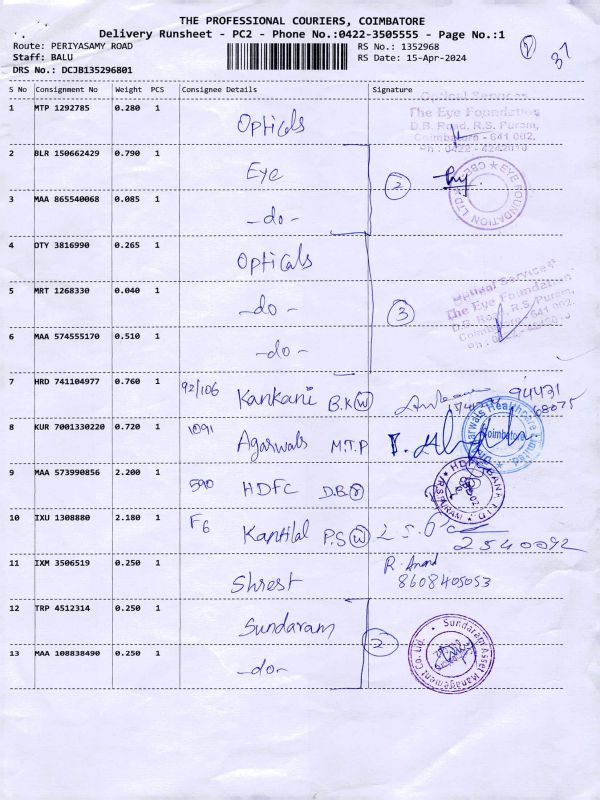 THE PROFESSIONAL COURIERS, COIMBATORE
Delivery Runsheet - PC2 - Phone No.:0422-3505555 - Page No.:1
Route: PERIYASAMY ROAD
Staff: BALU
DRS No.: DCJB135296801
RS No.: 1352968
RS Date: 15-Apr-2024
37
S No Consignment No Weight PCS Consignee Details Signature
1 MTP 1292785 0.280 1 Opticals
Optical Services
The Eye Foundation
D.B. Road, R.S. Puram,
Coimbatore - 641 002.
Ph : 0422 - 4242010
2 BLR 150662429 0.790 1 Eye
2
EYE FOUNDATION LTD CBE
3 MAA 865540068 0.085 1 -do-
4 OTY 3816990 0.265 1 Opticals
5 MRT 1268330 0.040 1 -do-
3
Optical Services
The Eye Foundation
D.B. Road, R.S. Puram,
Coimbatore - 641 002.
6 MAA 574555170 0.510 1 -do-
7 HRD 741104977 0.760 1 92/106 Kankani B.K W 94431
68075
8 KUR 7001330220 0.720 1 1091 Agarwals M.T.P
Coimbatore
9 MAA 573990856 2.200 1 590 HDFC D.B r
HDFC BANK LTD
R.S.PURAM
10 IXU 1308880 2.180 1 F6 Kantilal P.S W
2540092
11 IXM 3506519 0.250 1 Shrest R. Anand
8608405053
12 TRP 4512314 0.250 1 Sundaram
2
Sundaram Asset Management Co. Ltd.
13 MAA 108838490 0.250 1 -do-